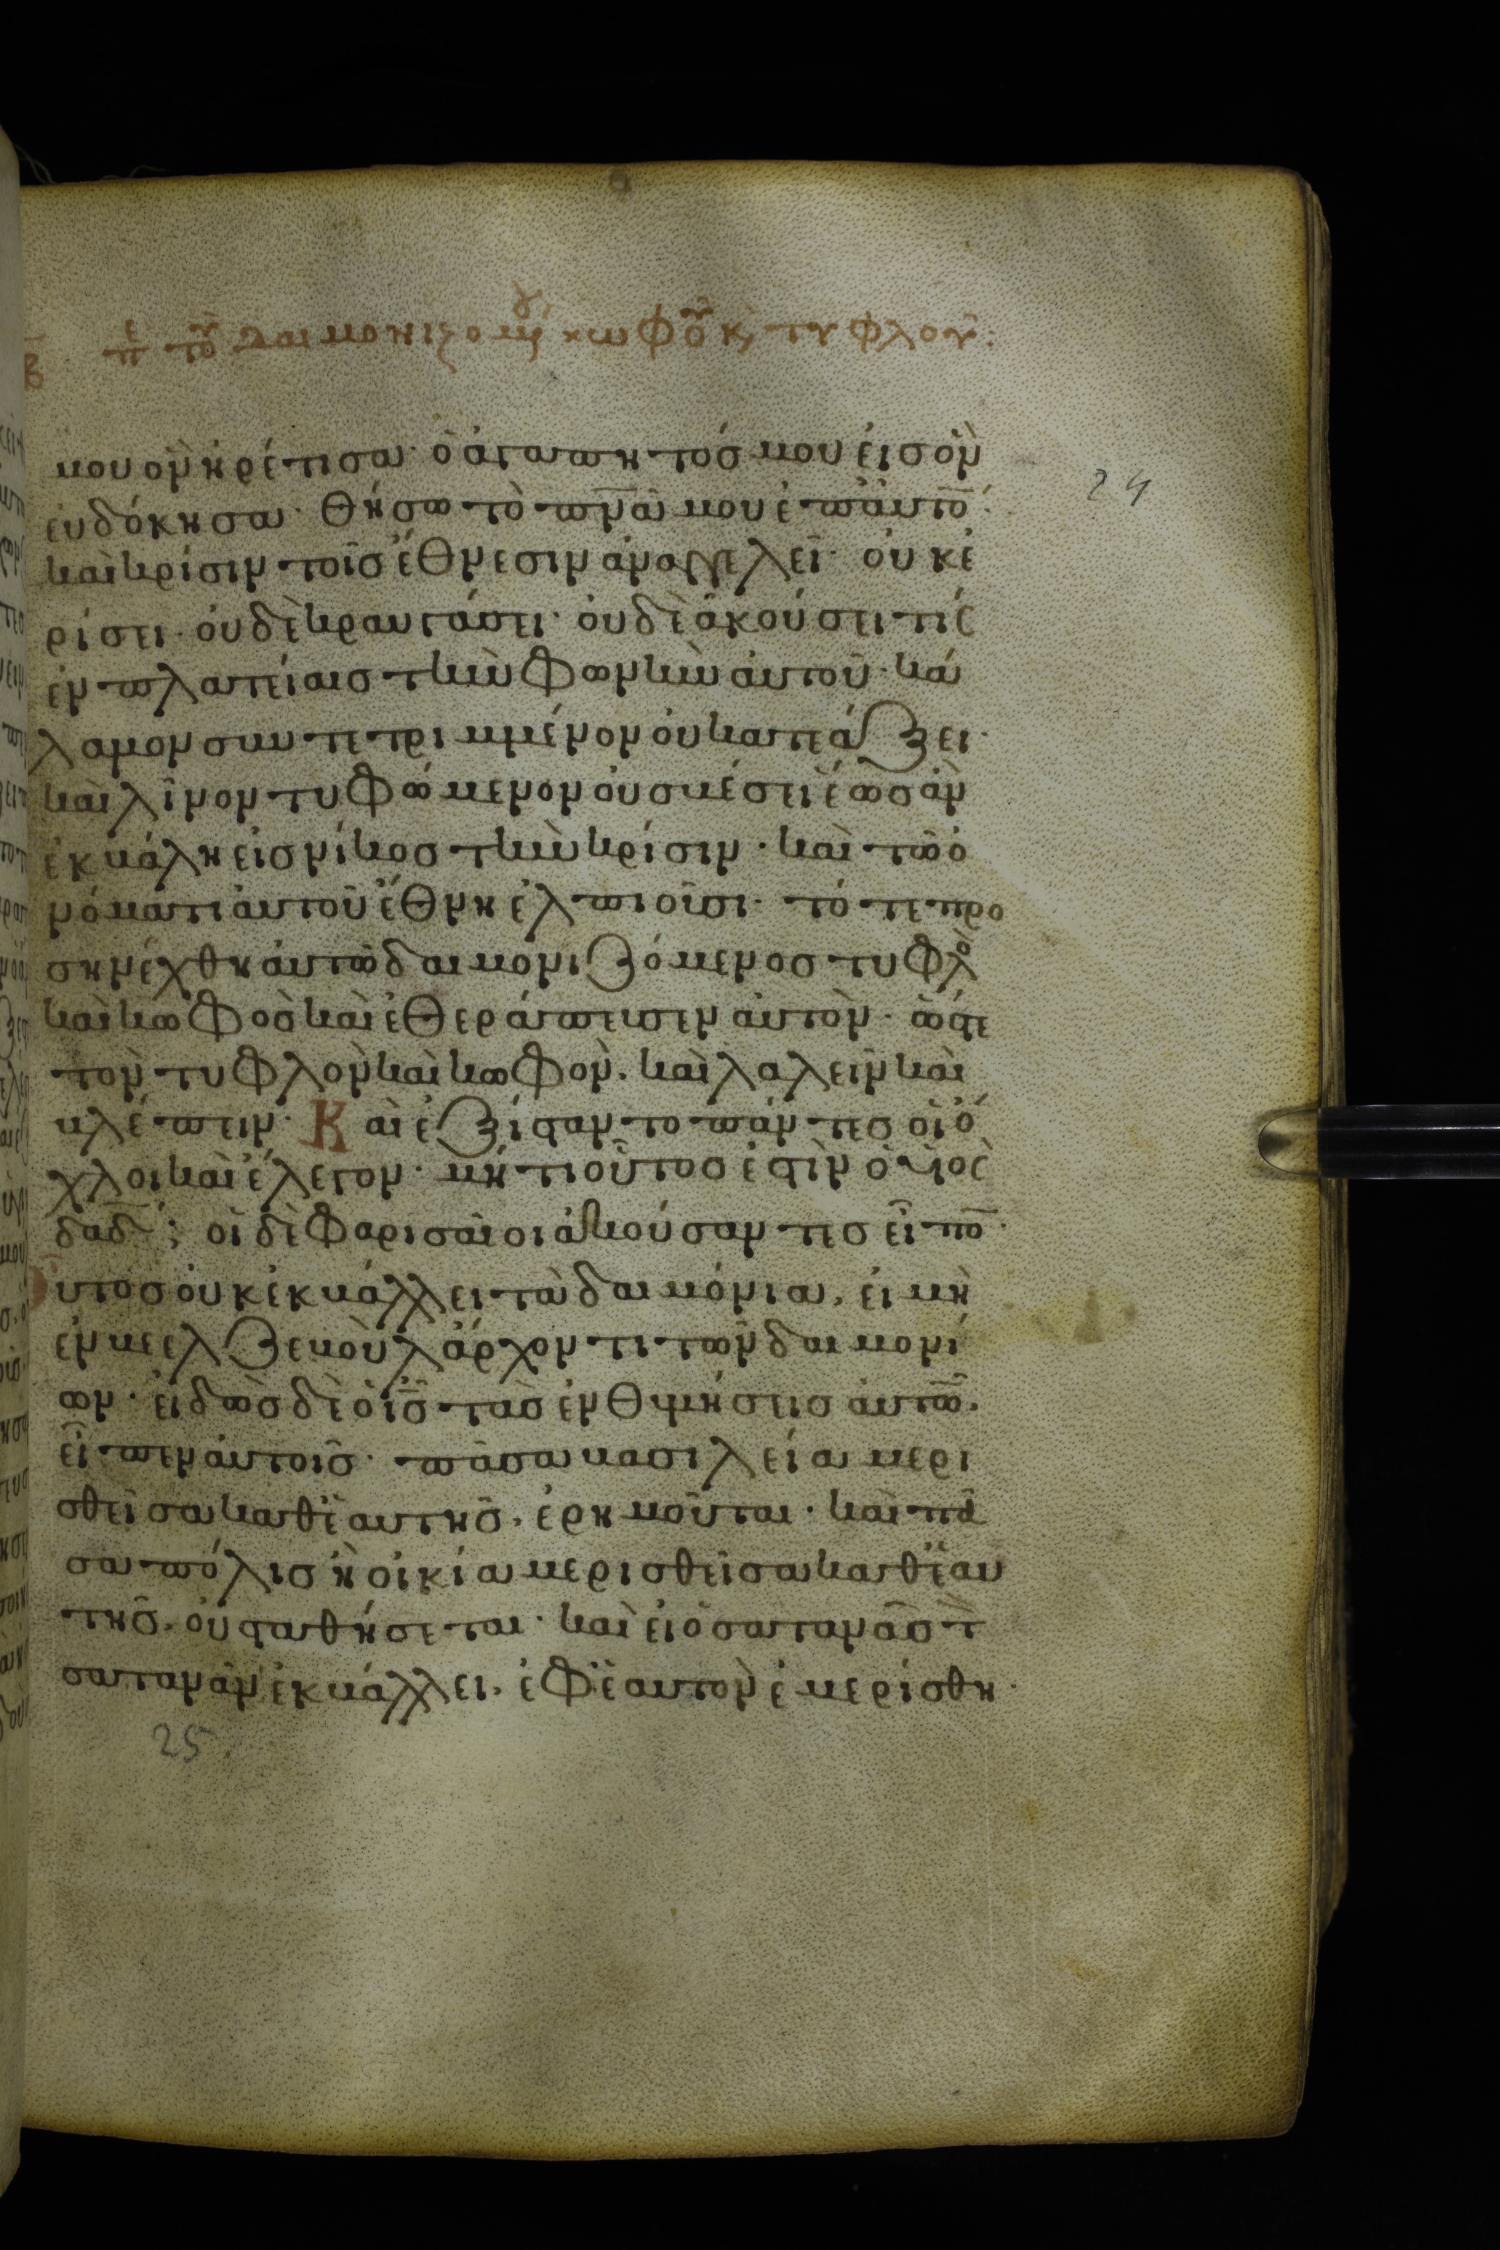 π̣ε τοῦ δαιμονιζομέν κωφοῦ κ τυφλοῦ:
μου ὃν ἡρέτισα· ὁ ἀγαπητός μου εἰς ὃν
24
εὐδόκησα· θήσω τὸ πνᾶ μου ἐπ αὐτο·
καὶ κρίσιν τοῖς ἔθνεσιν ἀπαγγελεῖ· οὐκ ἐ
ρίσει· οὐδὲ κραυγάσει· οὐδὲ ἀκούσει τίς
ἐν πλατείαις τὴν φωνὴν αὐτοῦ· κά
λαμον συντετριμμένον οὐ κατεάξει·
καὶ λῖνον τυφώμενον οὐ σβέσει ἕως ἂν
ἐκβάλη εἰς νίκος τὴν κρίσιν· καὶ τῶ ὀ
νόματι αὐτοῦ ἔθνη ἐλπιοῦσι· τότε προ
σηνέχθη αὐτῶ δαιμονιζόμενος τυφλὸ
καὶ κωφὸς καὶ ἐθεράπευσεν αὐτὸν· ὥστε
τὸν τυφλὸν καὶ κωφὸν. καὶ λαλεῖν καὶ
βλέπειν· Καὶ ἐξίσταντο πάντες οἱ ὄ
χλοι καὶ ἔλεγον· μήτι οὗτος ἐστὶν ὁ υἱος
δαδ; οἱ δὲ φαρισαῖοι ἀκούσαντες εἶπο·
Οὗτος οὐκ ἐκβάλλει τὰ δαιμόνια, εἰ μὴ
ἐν βεελζεβοὺλ ἄρχοντι τῶν δαιμονί
ων· εἰδὼς δὲ ὁ ις τὰς ἐνθυμήσεις αὐτῶ.
εἶπεν αὐτοῖς· πᾶσα βασιλεία μερι
σθεῖσα καθ ἑαυτῆς, ἐρημοῦται· καὶ πᾶ
σα πόλις ἢ οἰκία μερισθεῖσα καθ ἑαυ
τῆς, οὐ σταθήσεται· καὶ εἰ ὁ σατανᾶς τ
σατανᾶν ἐκβάλλει, ἐφ ἑαυτὸν ἐμερίσθη·
25